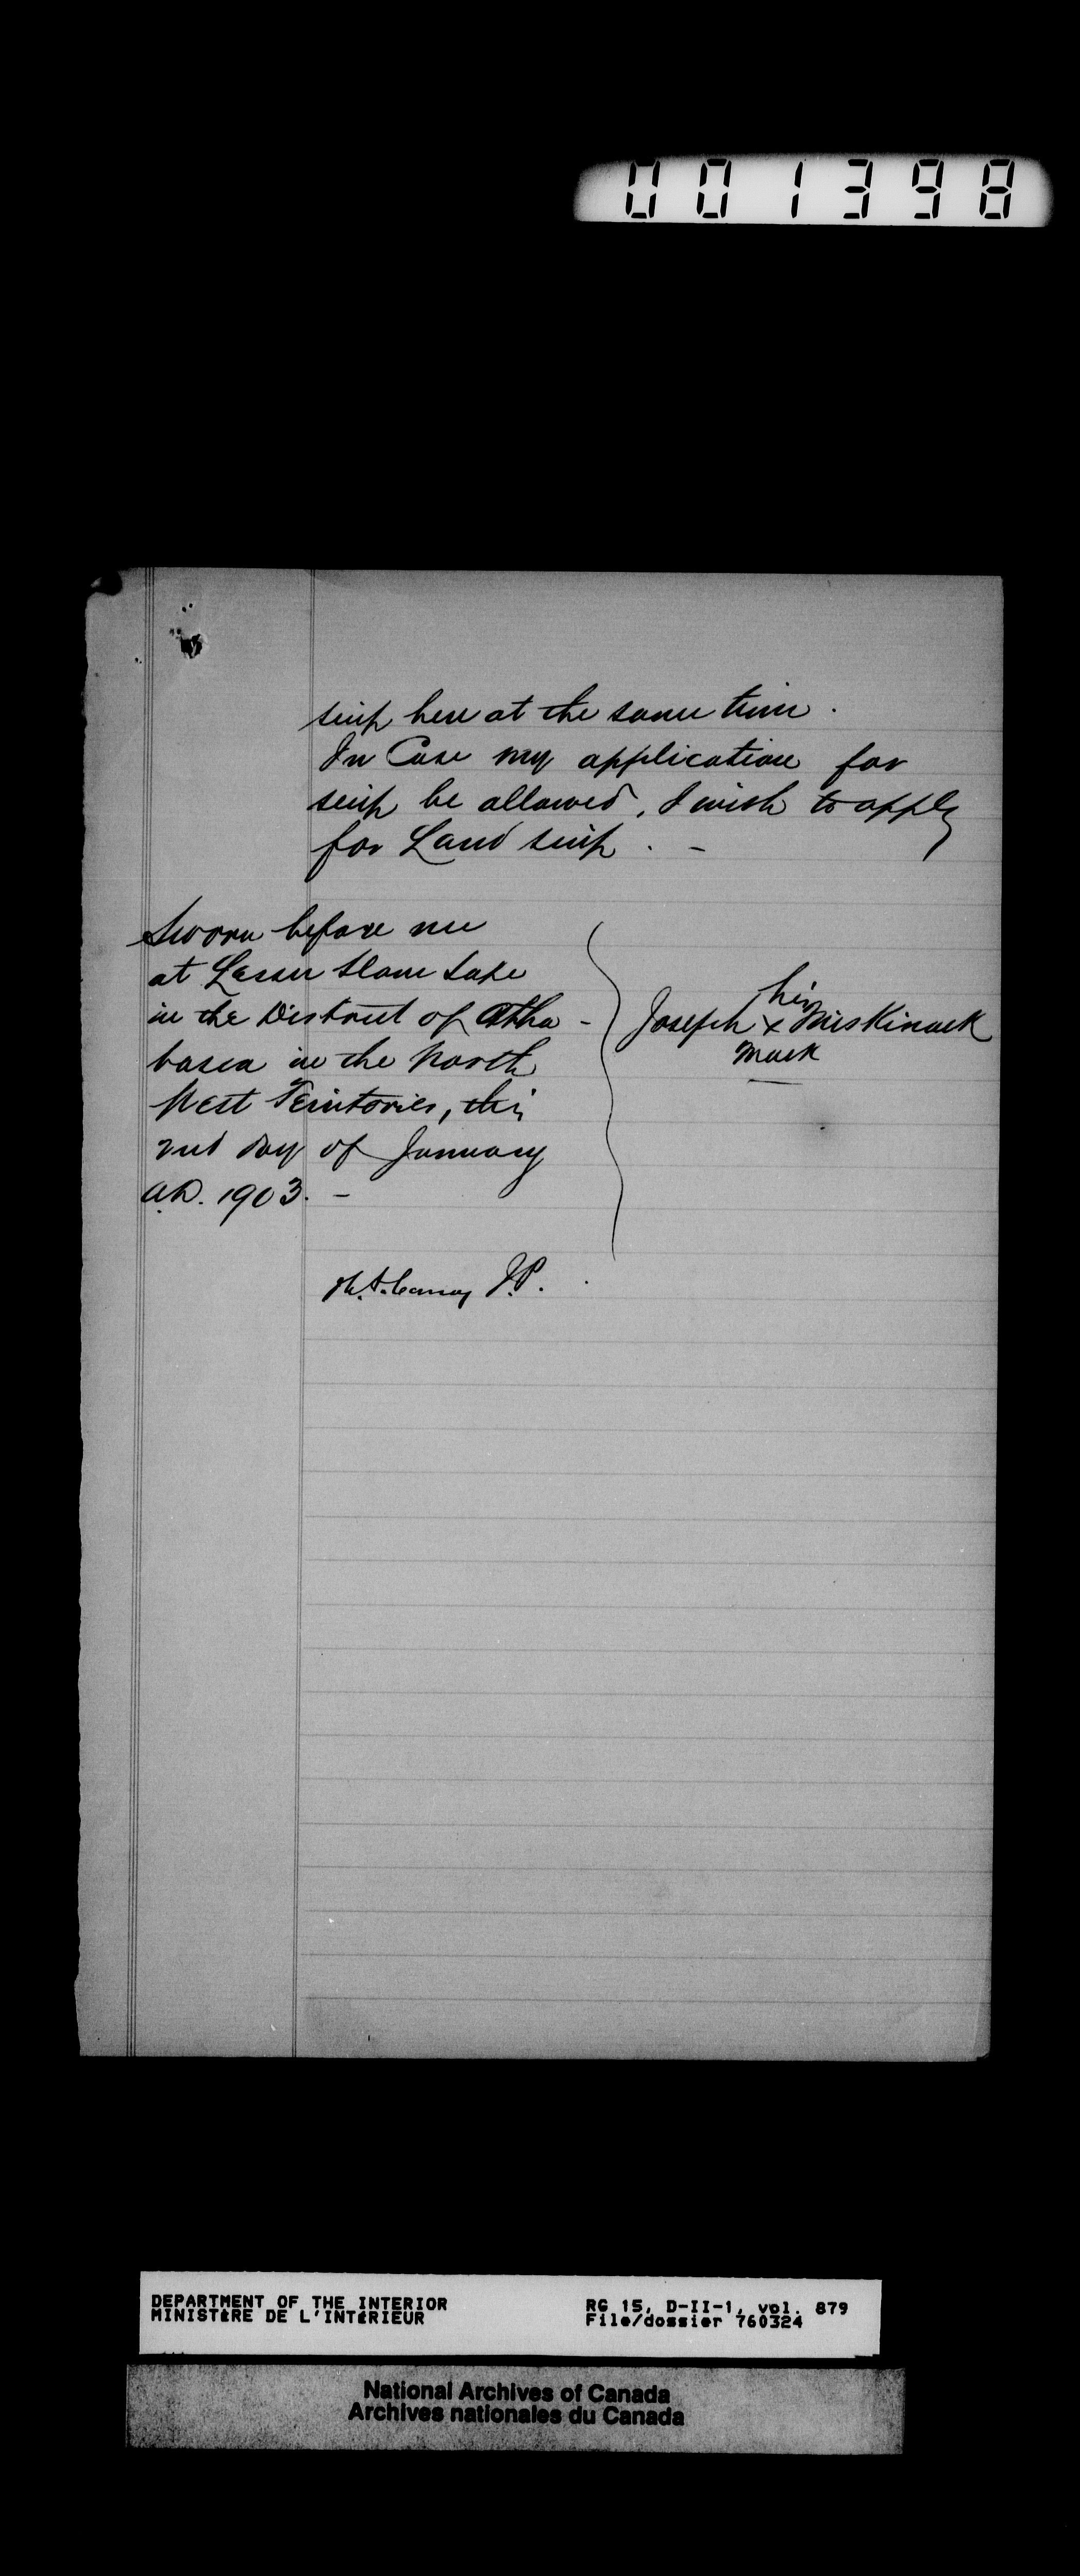 001398
scrip here at the same time.
In Case my application for
scrip be allowed, I wish to apply
for Land scrip. -
Sworn before me
at Lesser Slave Lake
in the District of Atha -
basca in the North
West Territories, this
2nd day of January
A.D. 1903. -
his
Joseph x Miskinack
mark
J.P.
DEPARTMENT OF THE INTERIOR
MINISTÈRE DE L'INTÉRIEUR
RG 15, D-II-1, vol. 879
File/dossier 760324
National Archives of Canada
Archives nationales du Canada